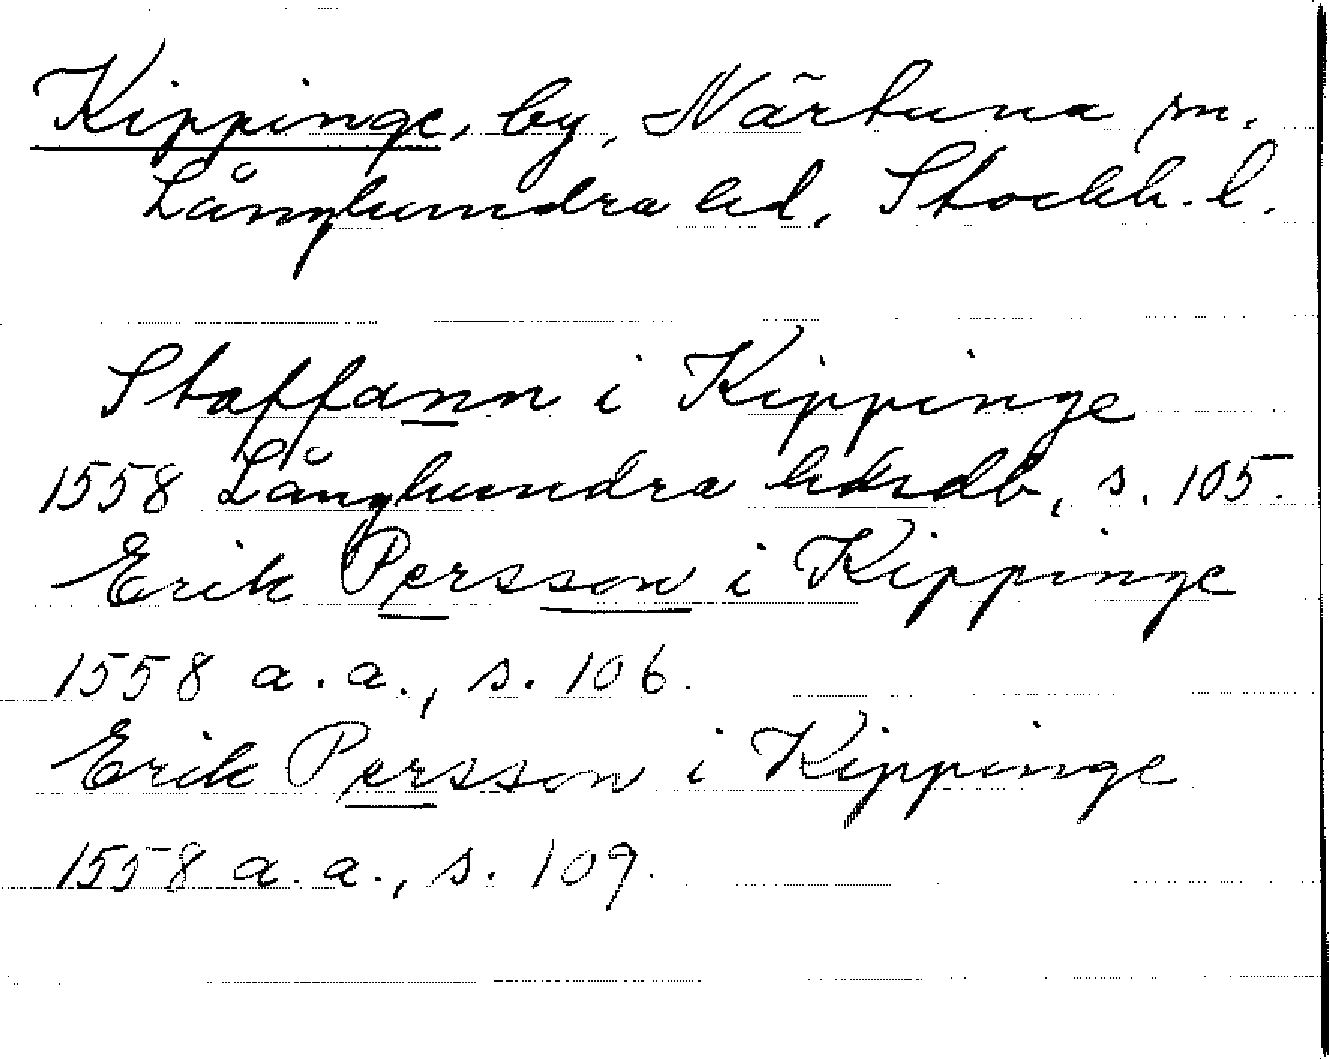 Kippinge, by, Närtuna sn.
Långhundra hd, Stockh. l.
Staffann i Kippinge
1558 Långhundra hdsdb, s. 105.
Erik Persson i Kippinge
1558 a. a., s. 106.
Erik Persson i Kippinge
1558 a. a., s. 109.